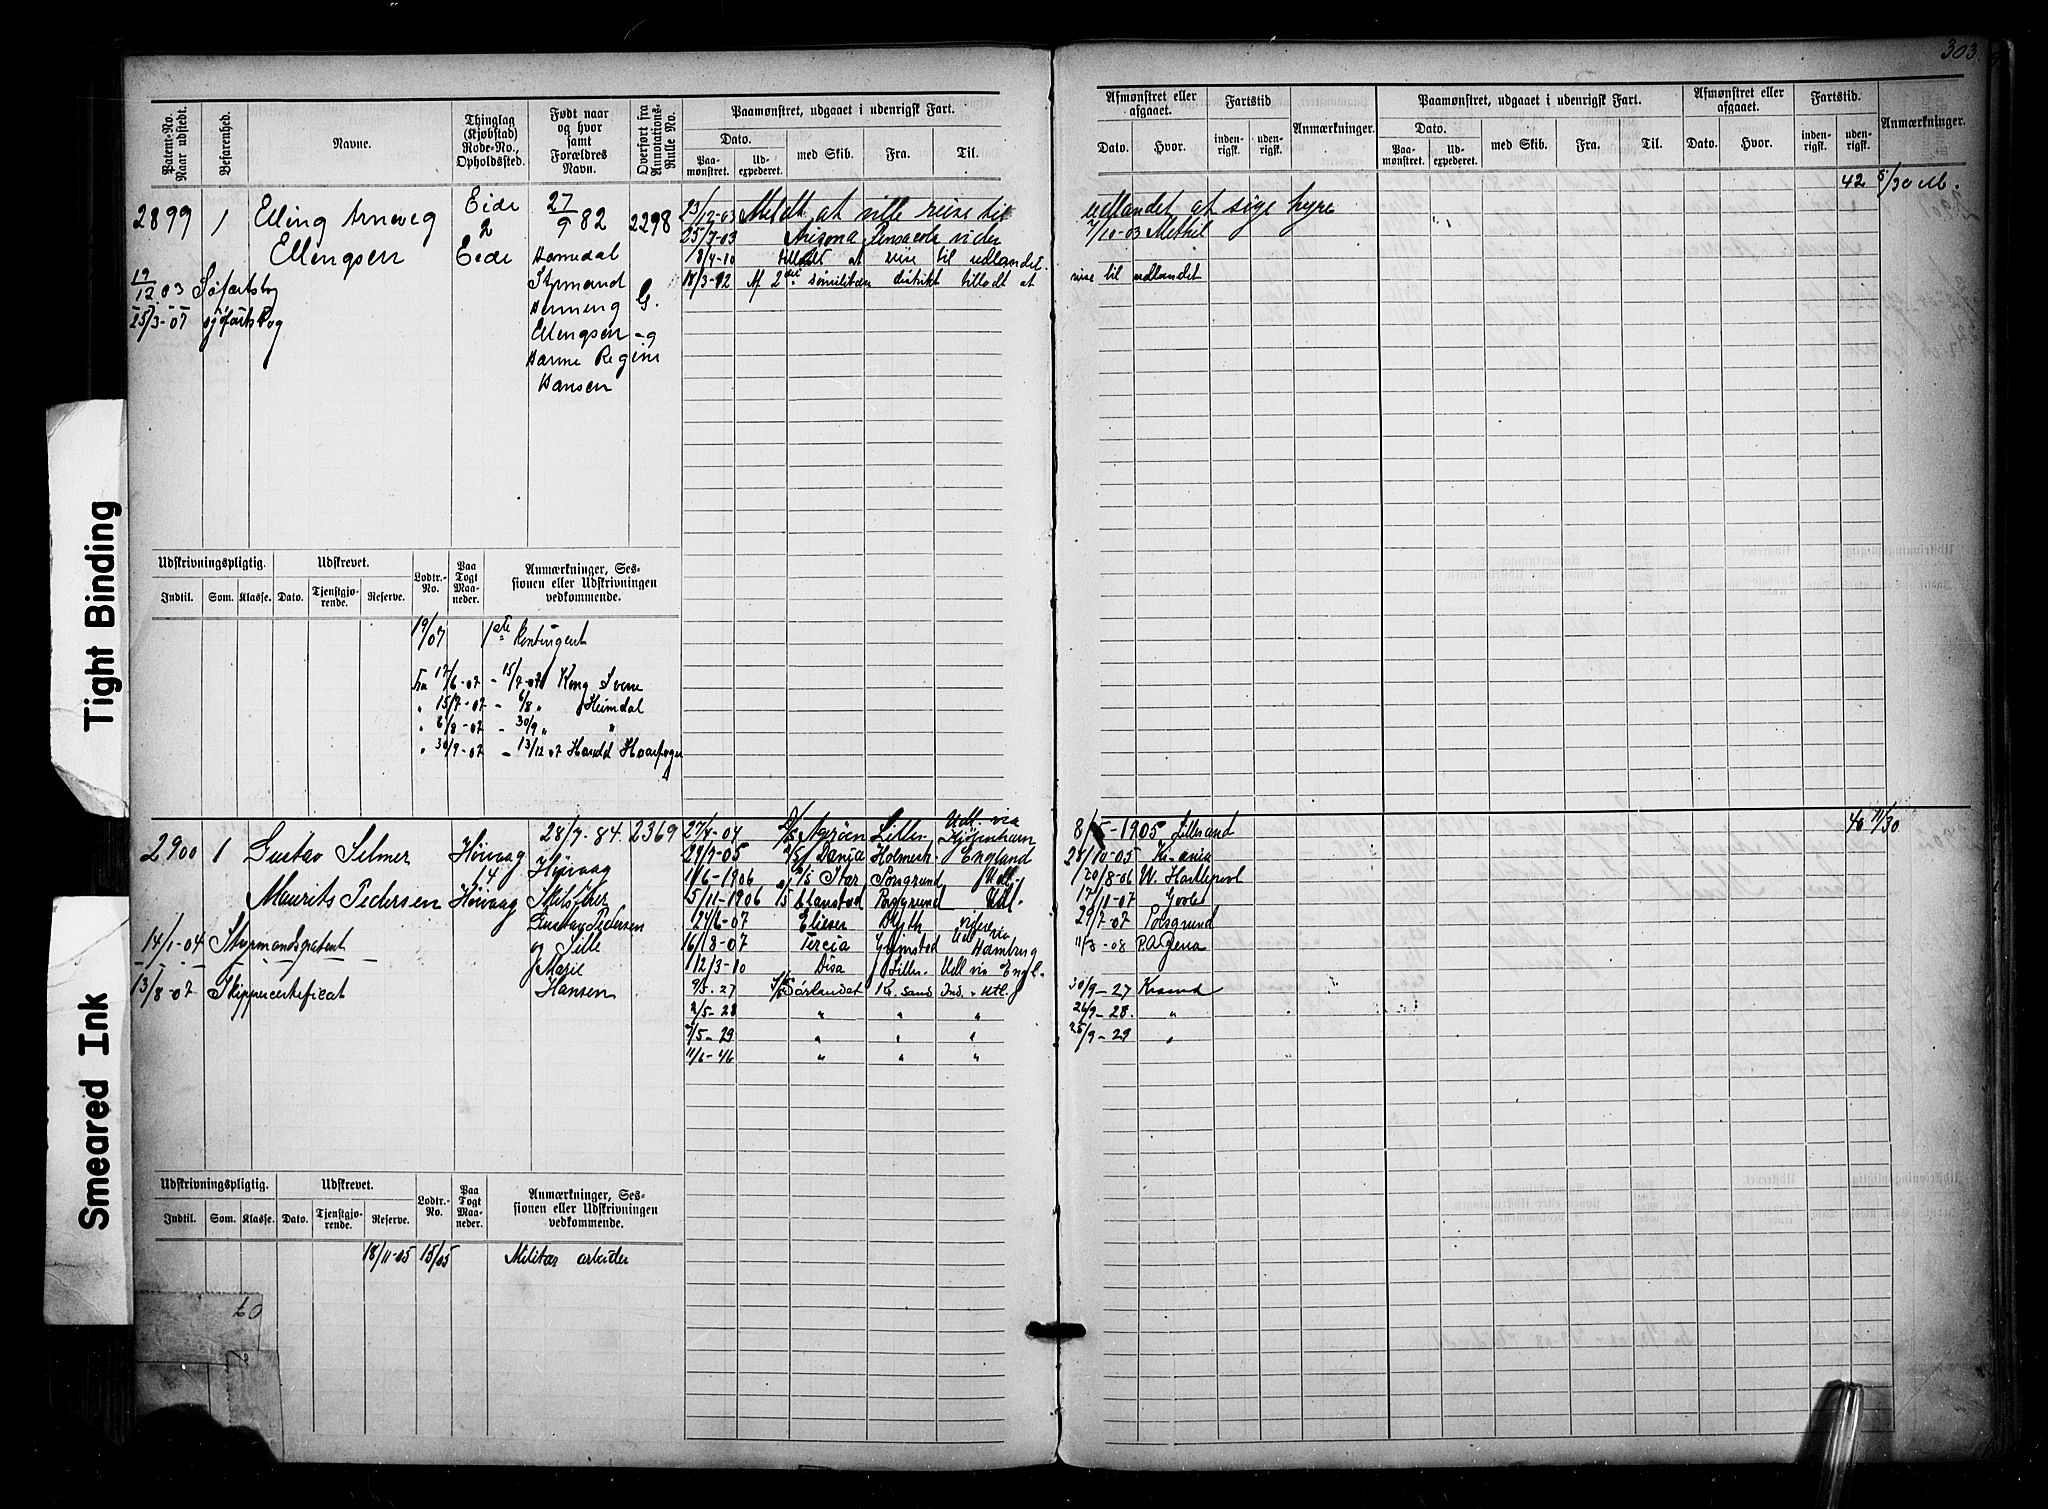 303
Patent-No. Naar udstedt.
Befarenhed.
Navne.
Thinglag (Kjøbstad) Rode-No., Opholdssted.
Født naar og hvor samt Forældres Navn.
Overført fra Annotations-Rulle No.
Paamønstret, udgaaet i udenrigsk Fart.
Dato.
Paamønstret.
Udexpederet.
med Skib.
Fra.
Til.
Afmønstret eller afgaaet.
Dato.
Hvor.
Fartstid
indenrigsk.
udenrigsk.
Anmærkninger.
Paamønstret, udgaaet i udenrigsk Fart.
Dato.
Paamønstret.
Udexpederet.
med Skib.
Fra.
Til.
Afmønstret eller afgaaet.
Dato.
Hvor.
Fartstid.
indenrigsk.
udenrigsk.
Anmærkninger.
2899 1 Elling Arneveg Eide 27/9 82 2298
Ellengsen 2 Eide Homedal
Styrmand
Henning G.
Ellengsen og
Hanne Regine
Hansen
19/12 03 Søfartsbog
25/3-07 sjøfartsbog
23/12-03 Meldt at ville reise til udlandet at søge hyre 42
25/7-03 Arisona Pensacola 7/10-03 Methil
18/4-10 tilladt at reise til udlandet.
18/3-12 Af 2det sømilitære distrikt tilladt at reise til udlandet
Udskrivningspligtig.
Udskrevet.
Lodtr.-No.
Paa Togt Maaneder.
Anmærkninger, Sessionen eller Udskrivningen vedkommende.
Indtil. Som. Klasse. Dato. Tjenstgjørende. Reserve.
19/07 1ste Kontingent
Fra 17/6-07 - 15/7-07 Kong Sverre
" 15/7-07 - 6/8 " Heimdal
" 6/8-07 - 30/9 " "
" 30/9-07 - 13/12 07 Harald Haarfager
2900 1 Gustav Selmer Høivaag 28/7-84. 2369
14 Høivaag
Maurits Pedersen Høivaag Skibsfører
Gustav Pedersen
14/1-04 Styrmandspatent og Sille
Marie
13/8-07 Skippercertificat Hansen
27/4-04 Agrøen Lille- Udl. via Kjøbenhavn 8/5-1905 Lillesand 40 11/30
29/7-05 Danja Holmest. England 28/10-05 Kr.ania
1/6-1906 Star Porsgrund Udl. 20/8-06 W. Hartlepool
5/11-1906 Porsgrund Udl. 17/11-07
24/6-07 Elieser Blyth 29/7-07 Porsgrund
16/8-07 Tercia Grimstad Udl via Hamburg 11/3-08
12/3-10 Disa Lille- Udl via Engl.
9/5-27 Sørlandet Kr. sand Ind. - Utl. 30/9-27 Krsand
2/5-28 " " " 26/9-28. "
7/5-29 " " " 25/9-29 "
11/6-46 " " "
Udskrivningspligtig.
Udskrevet.
Lodtr.-No.
Paa Togt Maaneder.
Anmærkninger, Sessionen eller Udskrivningen vedkommende.
Indtil. Som. Klasse. Dato. Tjenstgjørende. Reserve.
18/11-05 15/05 Militær arbeider
Tight Binding
Smeared Ink